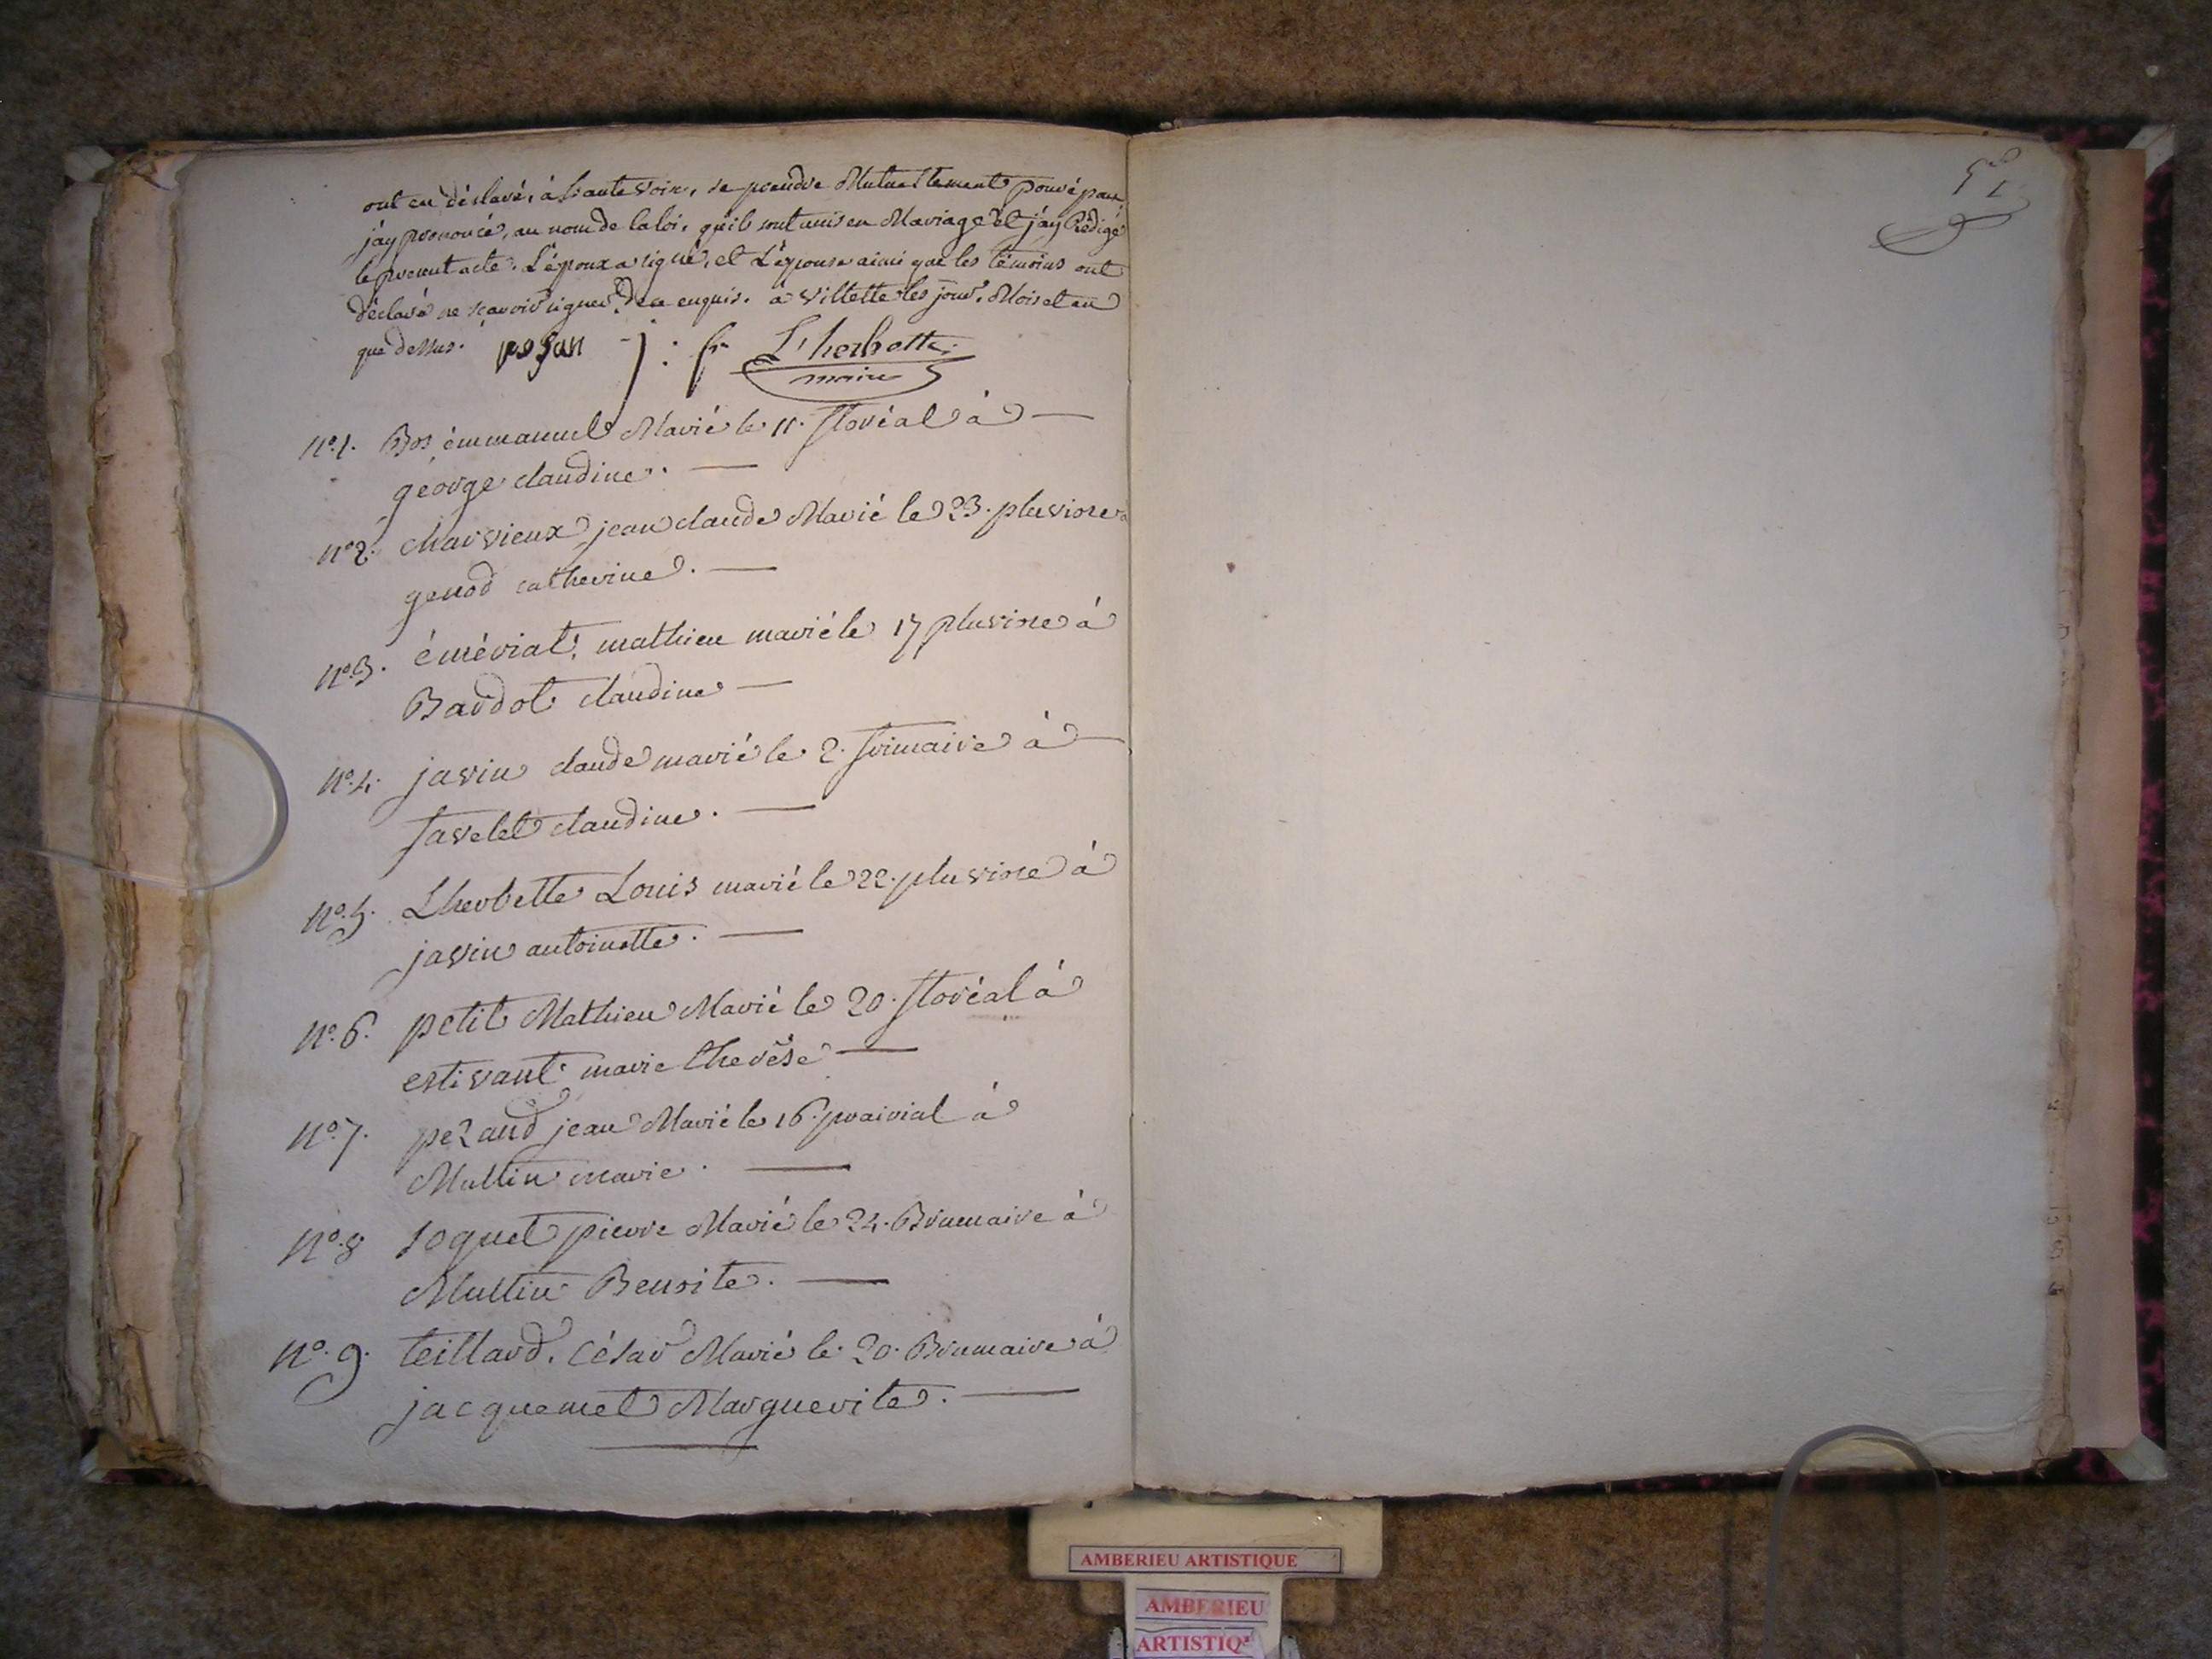 ont en déclaré, à haute voix, se prendre Mutuellement pour époux,
j'ay prononcé, au nom de la loi, qu'ils sont unis en Mariage et j'ay Rédigé
le présent acte. L'époux a signé, et L'épouse ainsi que les témoins ont
déclaré ne sçavoir signer de ce enquis. à Villette les jour, Mois et an
que dessus. L'herbette
maire
N°. 1. Bos émmanuel Marié le 11. floréal à
géorge claudine.
N°. 2. charvieux jean claude Marié le 23. pluviose à
genod catherine.
N°. 3. émériat, mathieu marié le 17 pluviose à
Bardot claudine
N°. 4. javin claude marié le 2. frimaire à
favelet claudine.
N°. 5. Lherbette Louis marié le 22. pluviose à
javin antoinette.
N°. 6. petit Mathieu Marié le 20. floréal à
estivant marie therèse
N°. 7. pezand jean Marié le 16. prairial à
Mullin marie.
N°. 8 soquet pierre Marié le 24. Brumaire à
Mullin Benoite.
N°. 9. teillard. César Marié le 20. Brumaire à
jacquemet Marguerite.
AMBERIEU ARTISTIQUE
AMBERIEU
ARTISTIQ